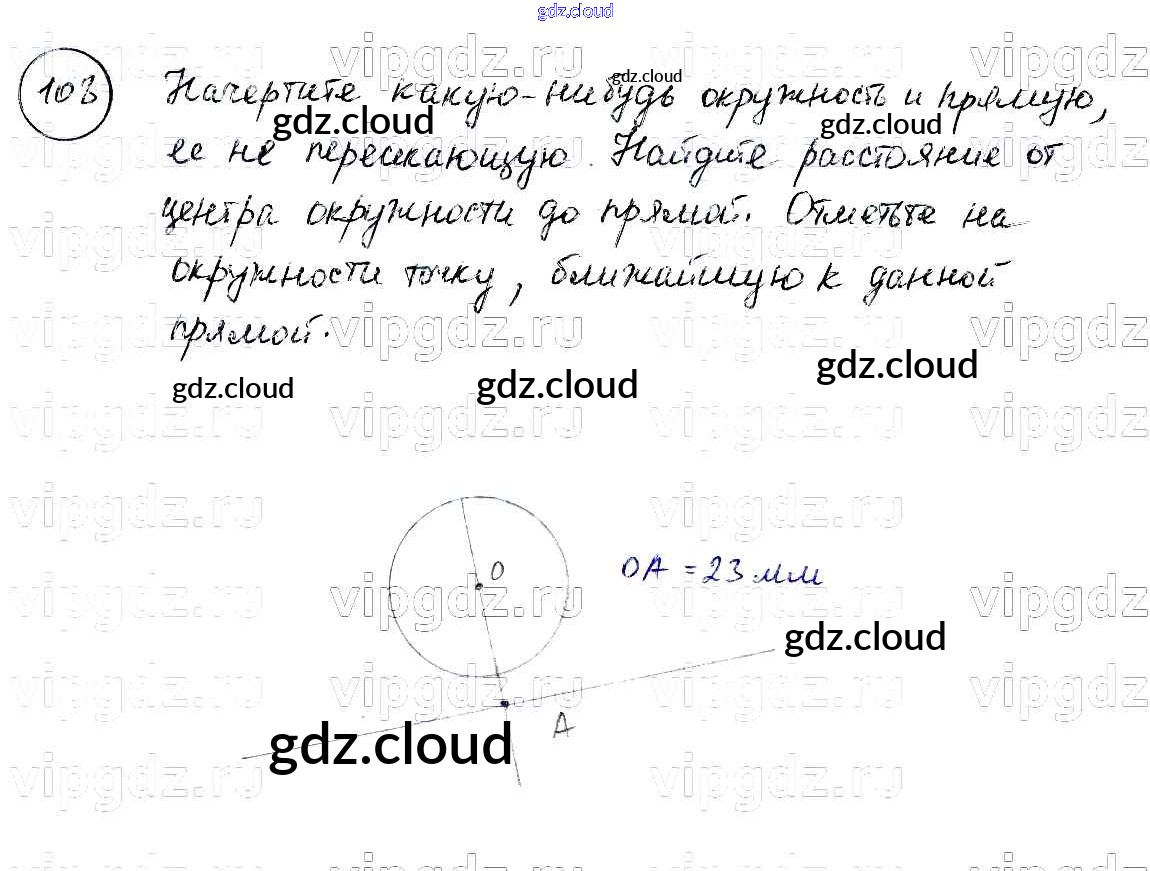 gdz.cloud
103 Начертите какую-нибудь окружность и прямую,
ее не пересекающую. Найдите расстояние от
центра окружности до прямой. Отметьте на
окружности точку, ближайшую к данной
прямой.
O
OA = 23 мм
A
gdz.cloud
gdz.cloud
gdz.cloud
gdz.cloud
gdz.cloud
gdz.cloud
gdz.cloud
gdz.cloud
vipgdz.ru